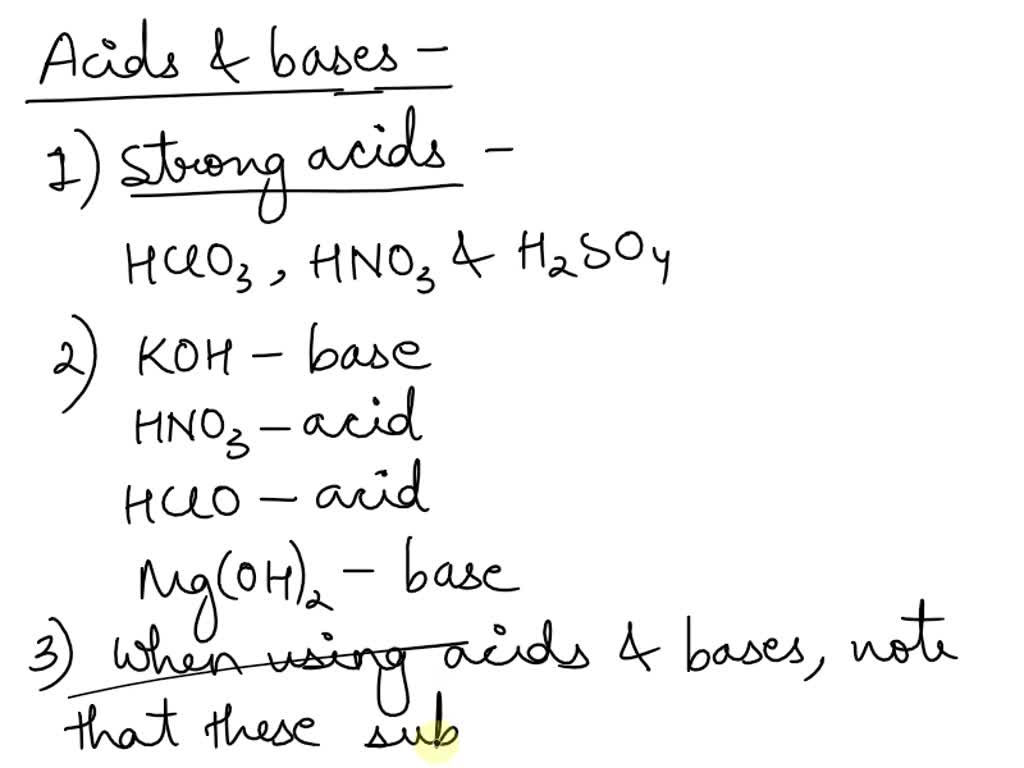 Acids & bases -
1) strong acids -
HClO₃, HNO₃ & H₂SO₄
2) KOH - base
HNO₃ - acid
HClO - acid
Mg(OH)₂ - base
3) when using acids & bases, note
that these sub